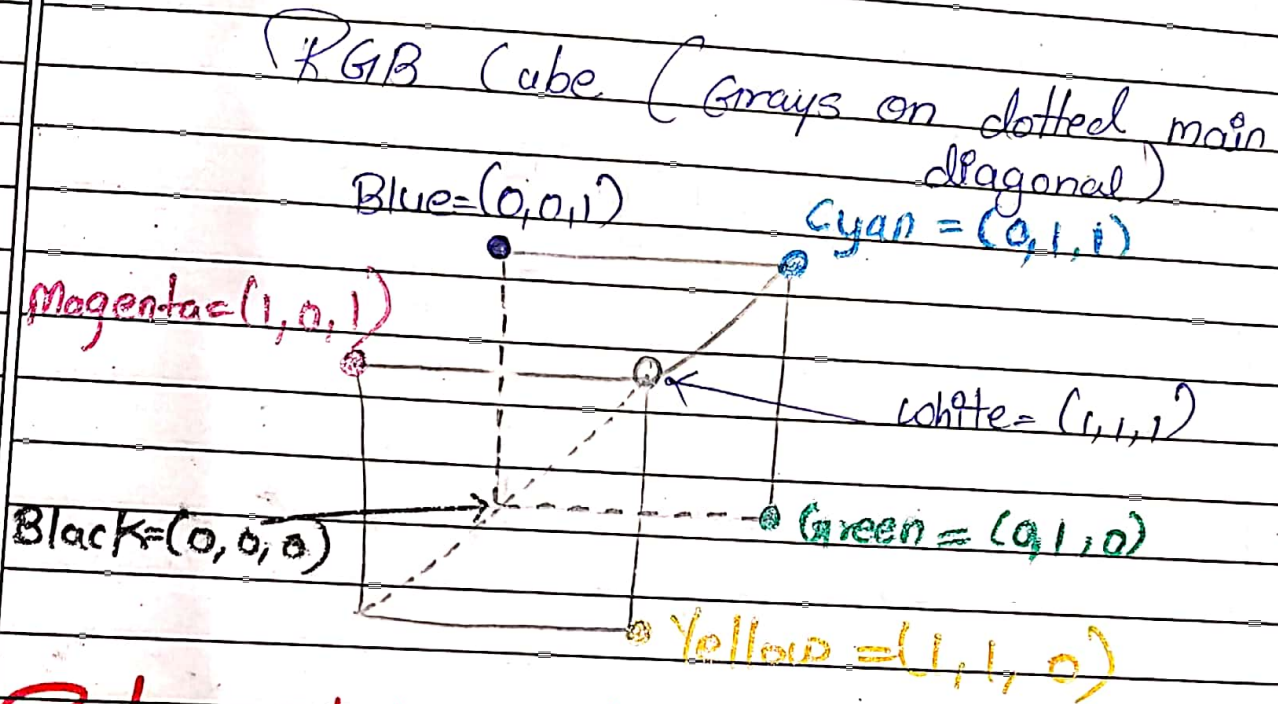 RGB Cube (Grays on dotted main
diagonal)
Blue=(0,0,1)
Cyan = (0,1,1)
Magenta=(1,0,1)
White= (1,1,1)
Black=(0,0,0)
Green = (0,1,0)
Yellow =(1,1,0)